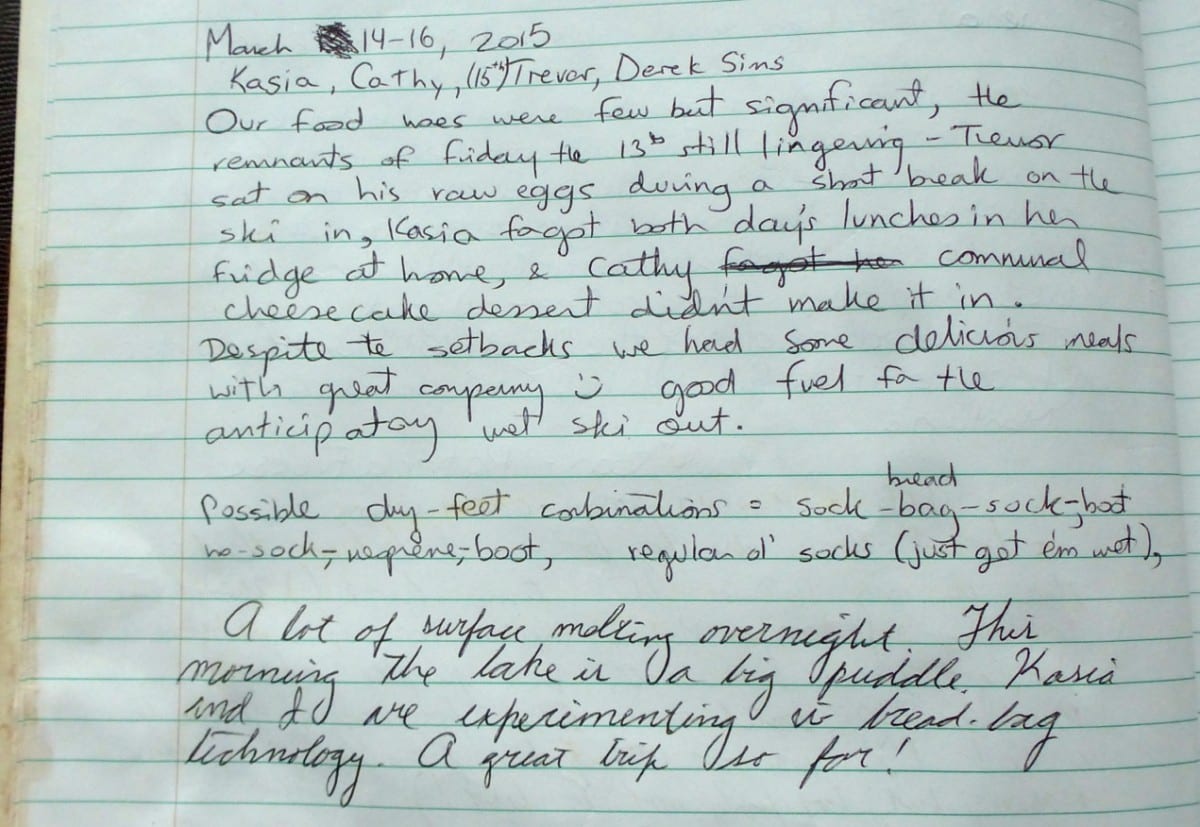 March 14-16, 2015
Kasia, Cathy, (15th) Trevor, Derek Sims
Our food woes were few but significant, the
remnants of friday the 13th still lingering - Trevor
sat on his raw eggs during a short break on the
ski in, Kasia forgot both day's lunches in her
fridge at home, & Cathy forgot her communal
cheesecake dessert didn't make it in.
Despite te setbacks we had some delicious meals
with great company :) good fuel for the
anticipatory wet ski out.
Possible dry-feet combinations = sock -bread bag-sock-boot
no-sock-neoprene-boot, regular ol' socks (just get 'em wet),
A lot of surface melting overnight. This
morning the lake is a big puddle. Kasia
and I are experimenting in bread-bag
technology. A great trip so far!